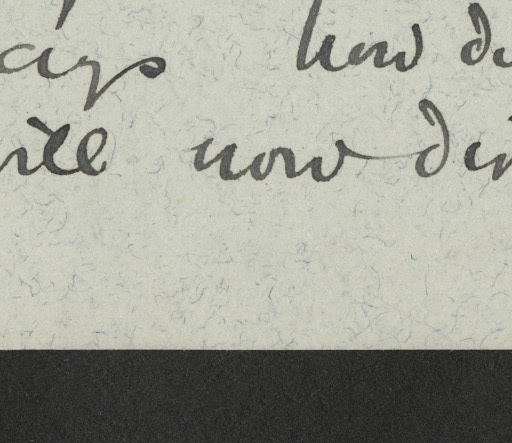 ays how di
ill now din